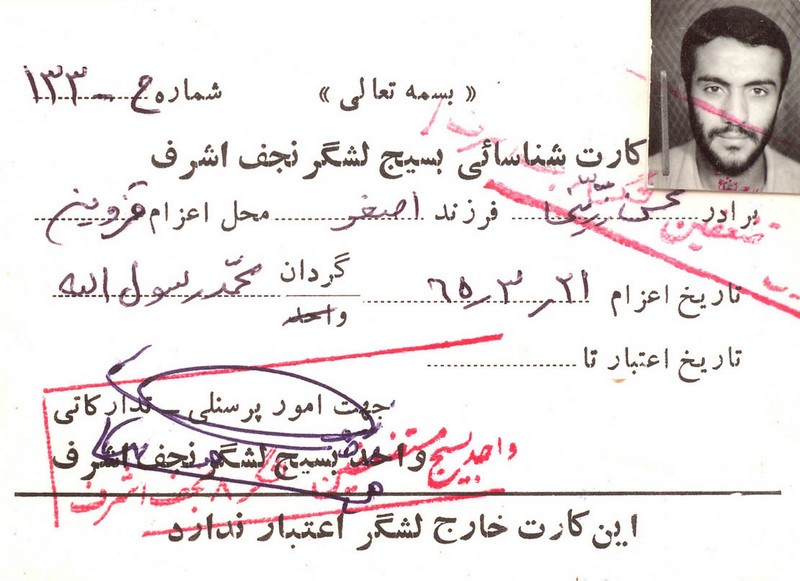 « بسمه تعالی »
شماره ع ـ ۱۳۳
کارت شناسائی بسیج لشگر نجف اشرف
برادر محسن فرزند اصغر محل اعزام قزوین
تاریخ اعزام ۲۱ ر ۳ ر ۶۵ گردان محمّد رسول الله
واحد
تاریخ اعتبار تا
جهت امور پرسنلی ـ تدارکاتی
واحد بسیج لشگر نجف اشرف
واحد بسیج مستضعفین لشگر ۸ نجف اشرف
این کارت خارج لشگر اعتبار ندارد